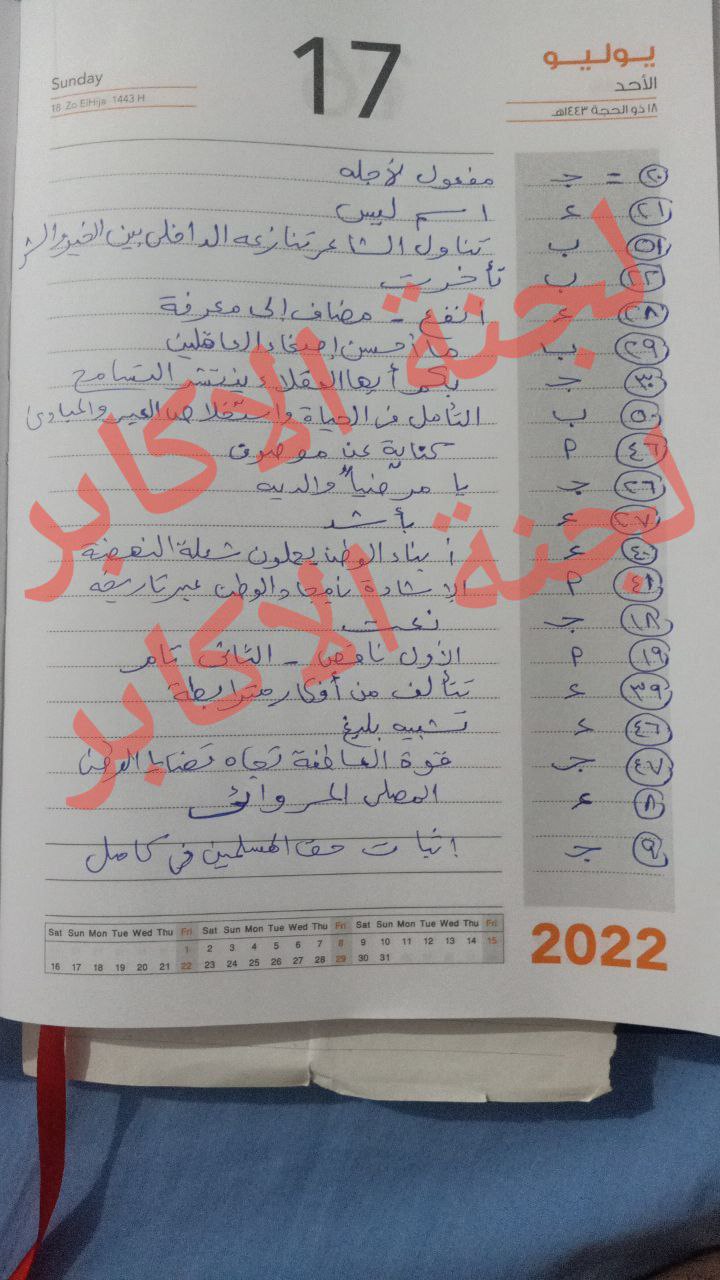 Sunday
18 Zo ElHija 1443 H
17
يوليو
الأحد
١٨ ذو الحجة ١٤٤٣هـ
٢٠ = جـ مفعول لأجله
٢١ ء اسم ليس
٥١ ب تناول الشاعر تنازعه الداخلى بين الخير والشر
ب تأخرت
٢٨ ء أنفع - مضاف إلى معرفة
٢٩ ب ما أحسن إصغاء العاقلين
٣٠ جـ بكم أيها العقلاء ينتشر التسامح
٥٠ ب التأمل فى الحياة واستخلاص العبر والمبادئ
٤٦ P كناية عن موصوف
٢٦ جـ يا مرضياً والديه
٢٧ ء بأشد
٤٠ ء أبناء الوطن يحملون شعلة النهضة
٤١ P الإشادة بأمجاد الوطن عبر تاريخه
١٨ جـ نعت
١٩ P الأول ناقص - الثانى تام
٣٩ ء تتألف من أفكار مترابطة
٤٦ ء تشبيه بليغ
٤٧ جـ قوة العاطفة تجاه قضايا الوطن
٨ ء المصلى المروانى
٩ جـ إثبات حق المسلمين فى كامل
لجنة الاكابر
لجنة الاكابر
Sat Sun Mon Tue Wed Thu Fri Sat Sun Mon Tue Wed Thu Fri Sat Sun Mon Tue Wed Thu Fri
1 2 3 4 5 6 7 8 9 10 11 12 13 14 15
16 17 18 19 20 21 22 23 24 25 26 27 28 29 30 31
2022